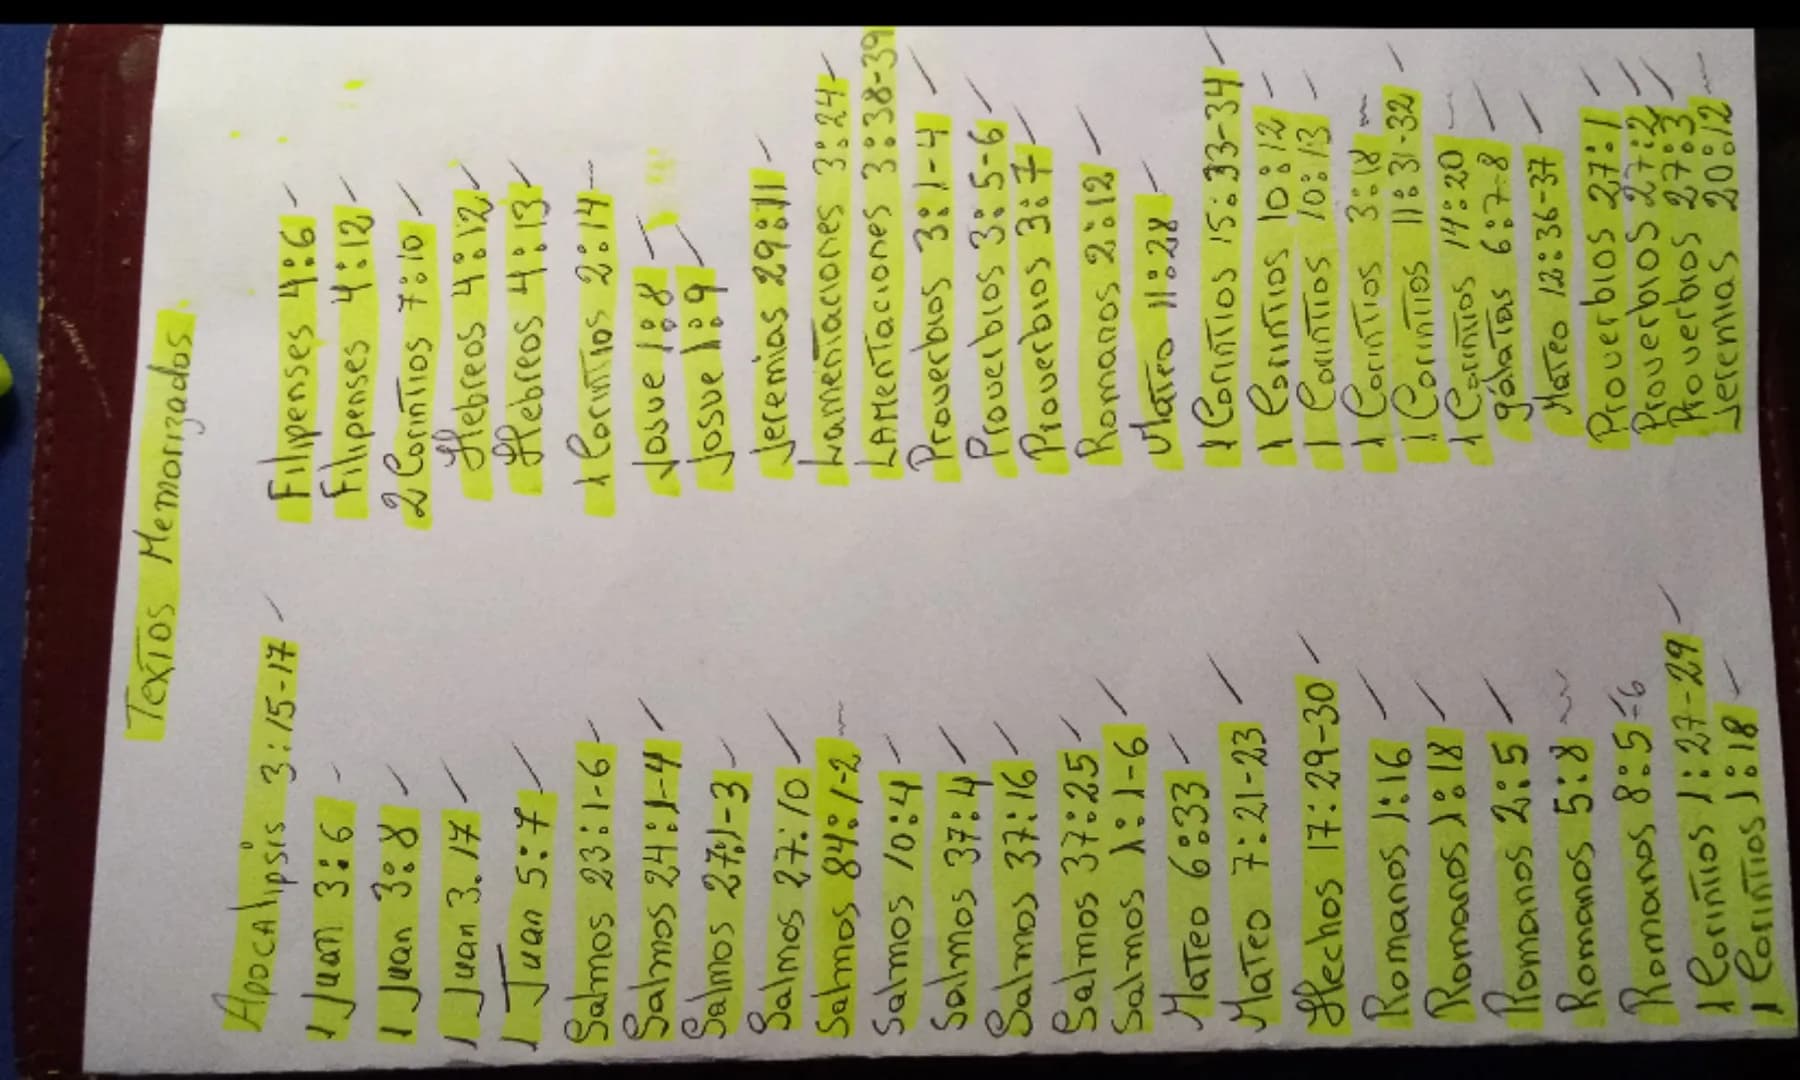 Textos Memorizados
Apocalipsis 3:15-17
1 Juan 3:6
1 Juan 3:8
1 Juan 3.17
1 Juan 5:7
Salmos 23:1-6
Salmos 24:1-4
Salmos 27:1-3
Salmos 27:10
Salmos 84:1-2
Salmos 10:4
Salmos 37:4
Salmos 37:16
Salmos 37:25
Salmos 1:1-6
Mateo 6:33
Mateo 7:21-23
Hechos 17:29-30
Romanos 1:16
Romanos 1:18
Romanos 2:5
Romanos 5:8
Romanos 8:5-6
1 Corintios 1:27-29
1 Corintios 1:18
Filipenses 4:6
Filipenses 4:12
2 Corintios 7:10
Hebreos 4:12
Hebreos 4:13
1 Corintios 2:14
Josue 1:8
Josue 1:9
Jeremias 29:11
Lamentaciones 3:24
LAMentaciones 3:38-39
Proverbios 3:1-4
Proverbios 3:5-6
Proverbios 3:7
Romanos 2:12
Mateo 11:28
1 Corintios 15:33-34
1 Corintios 10:12
1 Corintios 10:13
1 Corintios 3:18
1 Corintios 11:31-32
1 Corintios 14:20
gálatas 6:7-8
Mateo 12:36-37
Proverbios 27:1
Proverbios 27:2
Proverbios 27:3
Jeremias 20:12